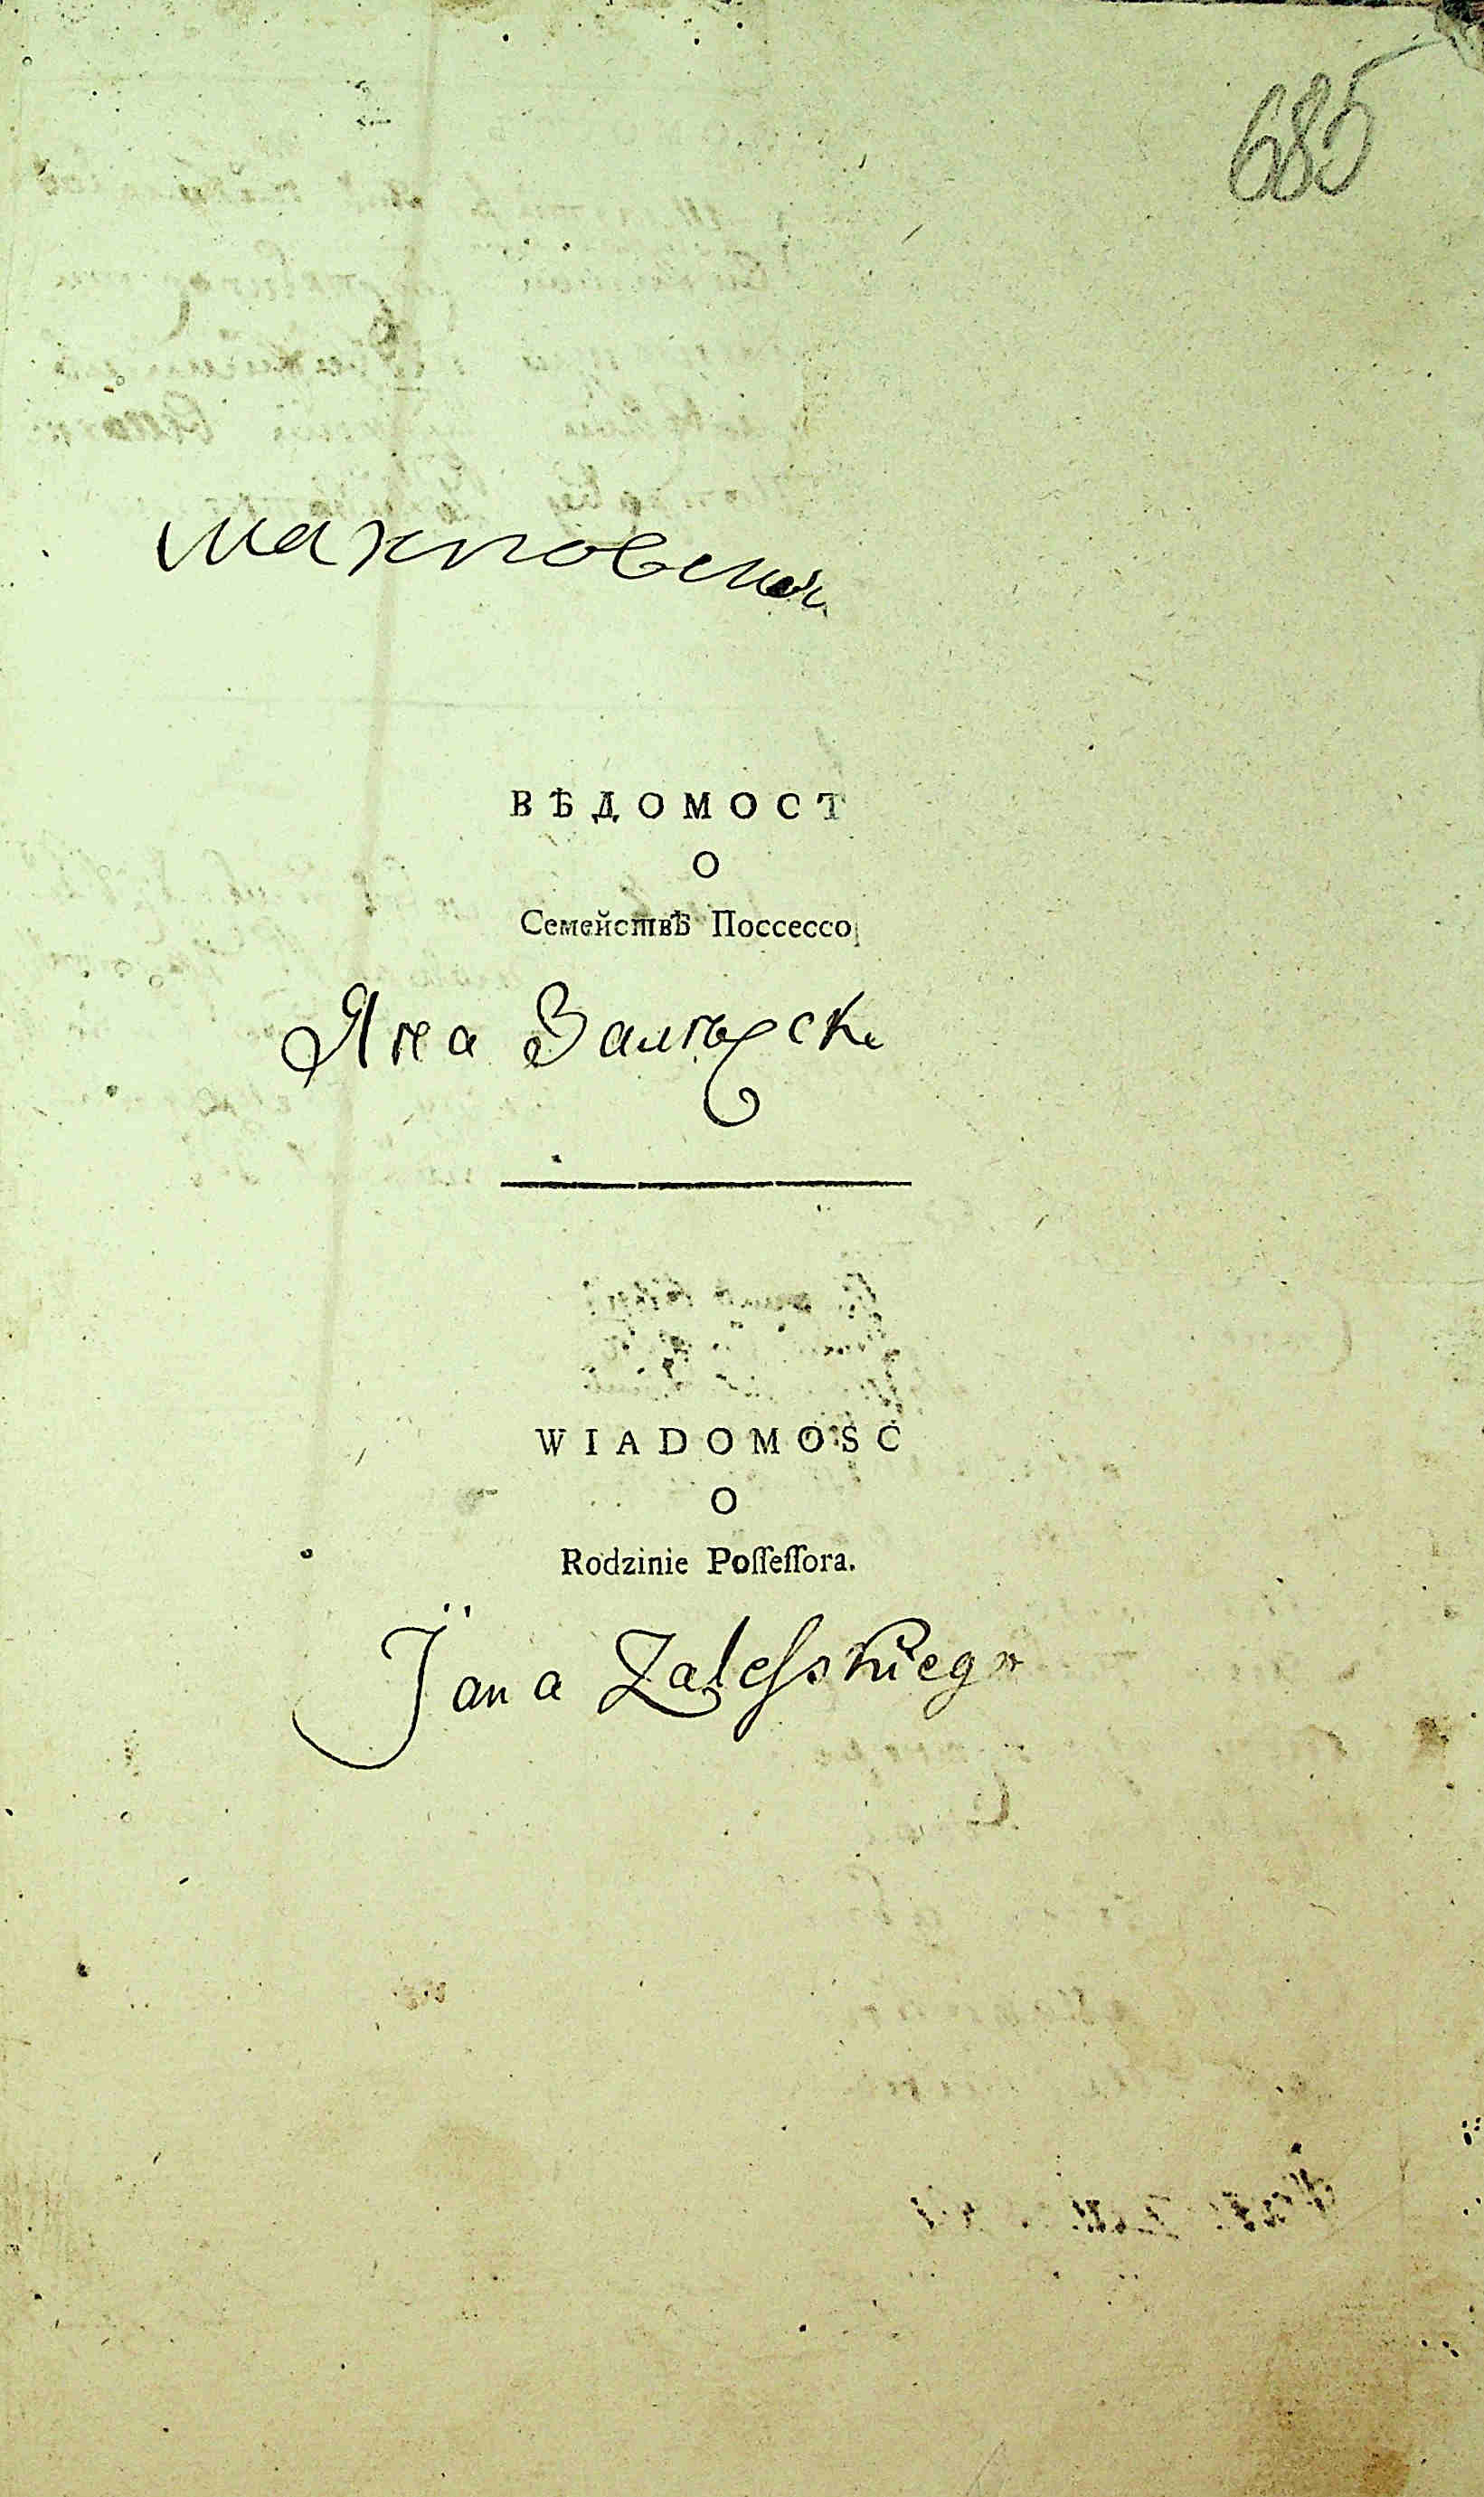 685
махновская
ВѢДОМОСТ
О
Семействѣ Поссессо
Яна Залѣск
WIADOMOŚĆ
O
Rodzinie Poſſeſſora.
Jana Zaleſskiego